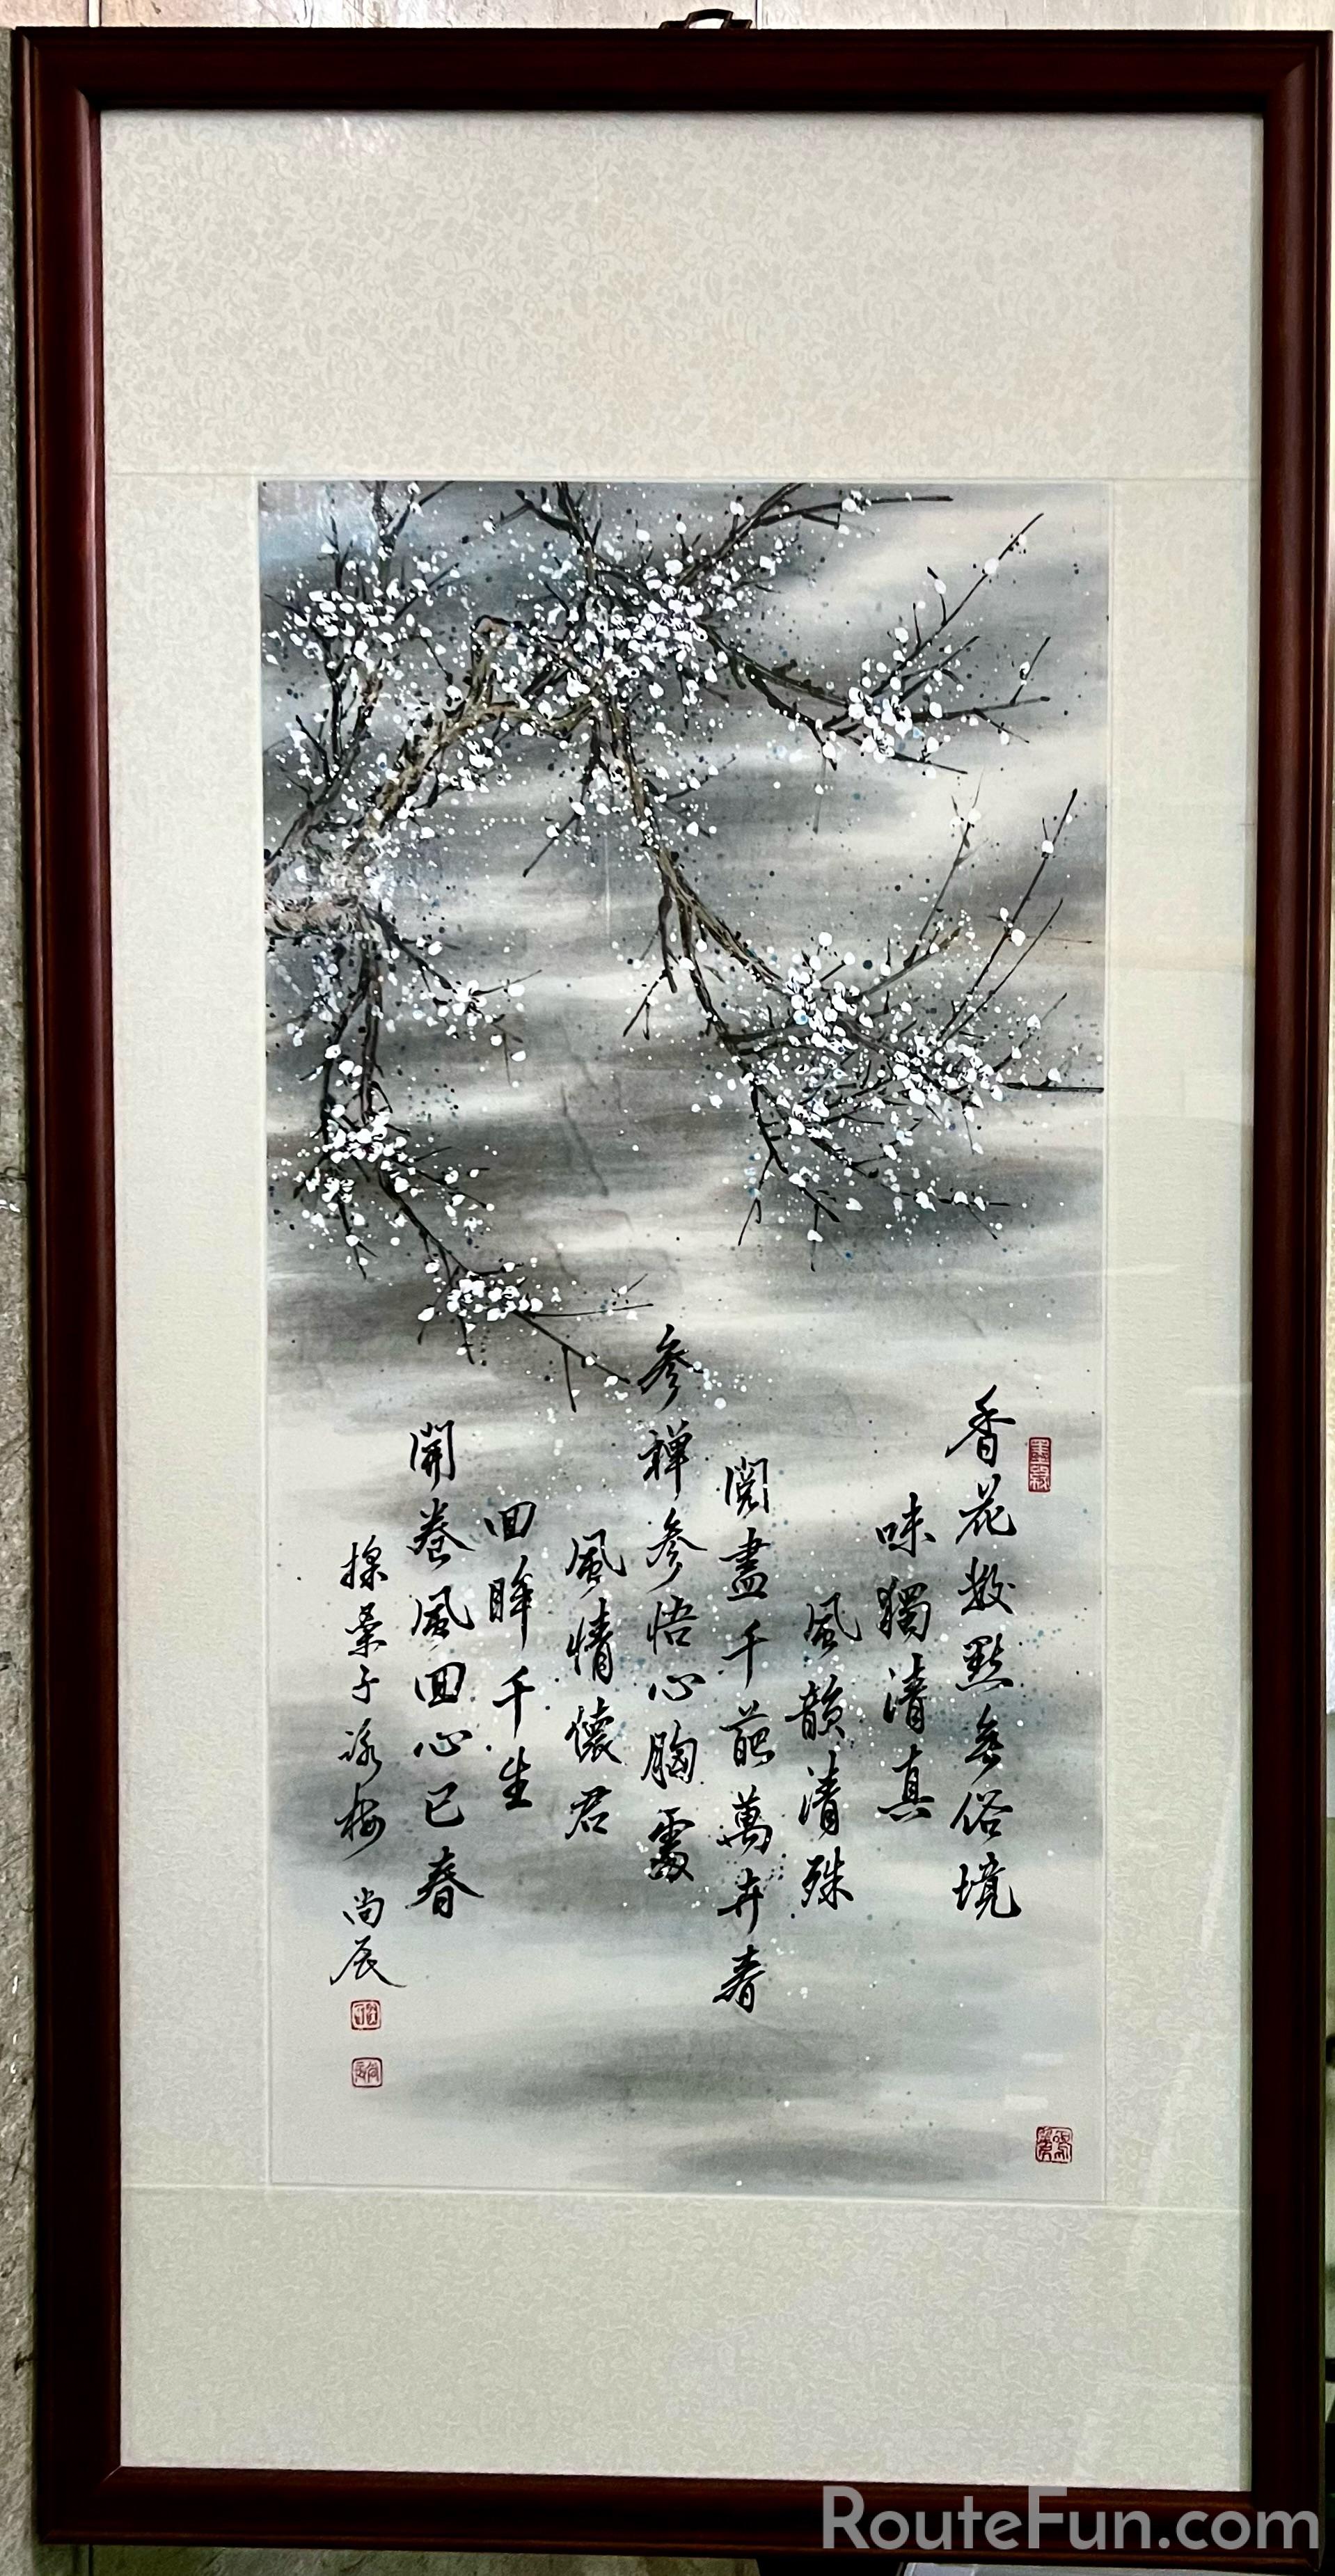 香花数點無俗境
味獨清真
風韻清殊
閱盡千葩萬卉春
參禪參悟心胸處
風情懷君
回眸千生
開卷風回心已春
採桑子 咏梅 尚辰
RouteFun.com